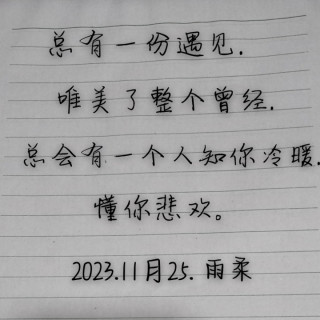 总有一份遇见.
唯美了整个曾经.
总会有一个人知你冷暖.
懂你悲欢。
2023.11月25.雨柔